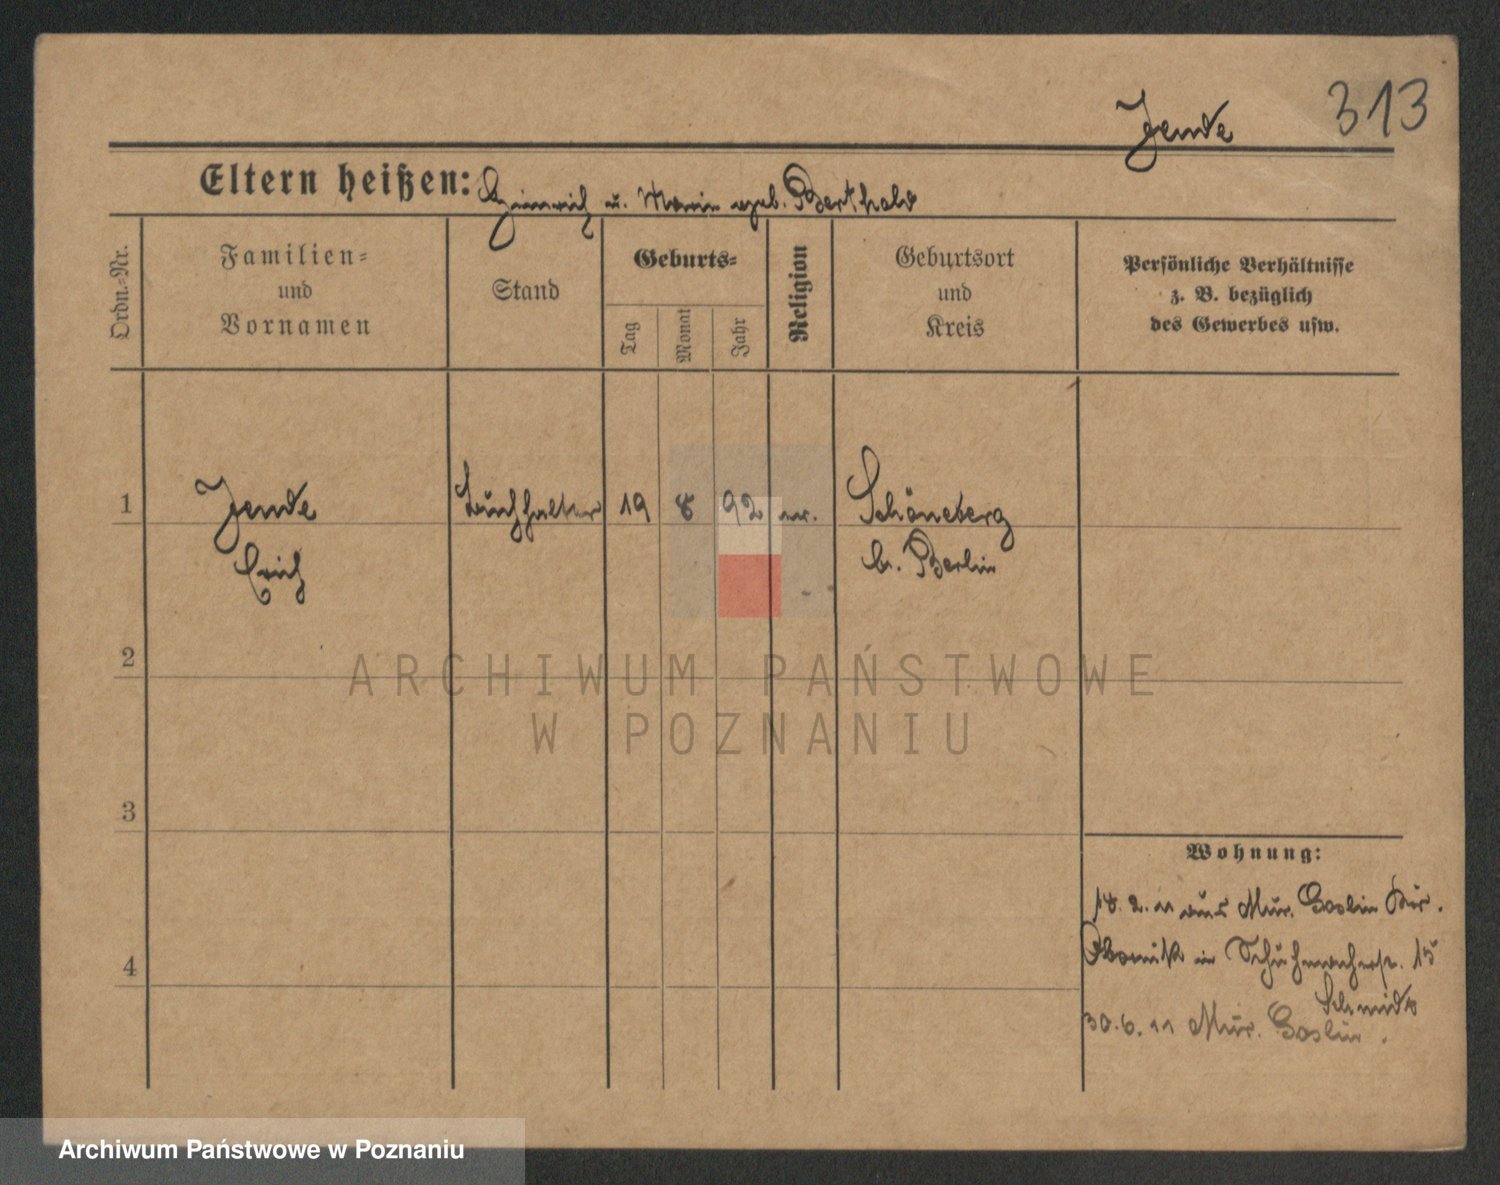 Jende 313
Eltern heißen: Heinrich u. Marie geb. Berthold
Ordn.-Nr.
Familien-
und
Vornamen
Stand
Geburts-
Tag
Monat
Jahr
Religion
Geburtsort
und
Kreis
Persönliche Verhältnisse
z. B. bezüglich
des Gewerbes usw.
1 Jende Buchhalter 19 8 92 ev. Schöneberg
Erich b. Berlin
2
3
4
Wohnung:
18. 2. 11 aus Mur. Goslin Kr.
Obornik in Schuhmacherstr. 15
Schmidt
30. 6. 11 Mur. Goslin.
ARCHIWUM PAŃSTWOWE
W POZNANIU
Archiwum Państwowe w Poznaniu